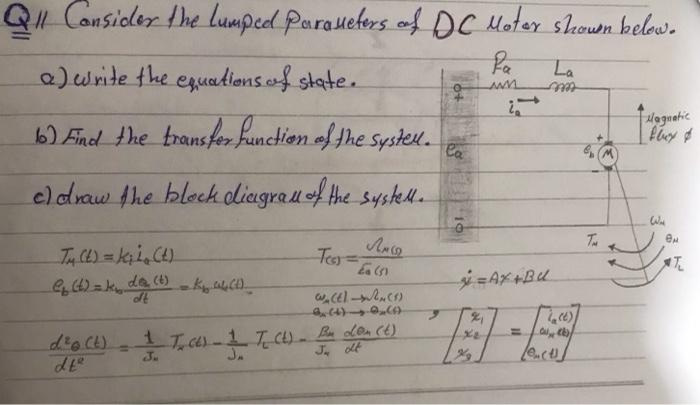 Q1// Consider the lumped Parameters of DC Motor shown below.
a) write the equations of state.
b) Find the transfer function of the system.
c) draw the block diagram of the system.
Ra La
ia
+
ea
-
+
eb M
Magnetic flux ϕ
Tm ωm θm TL
Tm(t) = ki ia(t)
T(s) = Ωm(s) / Ea(s)
eb(t) = kb dθm(t)/dt = kb ωm(t)
ωm(t) → Ωm(s)
θm(t) → θm(s)
ẋ = Ax + Bu
d²θm(t)/dt² = 1/Jm Tm(t) - 1/Jm TL(t) - Bm/Jm dθm(t)/dt
, [x1 x2 x3] = [ia(t) ωm(t) θm(t)]